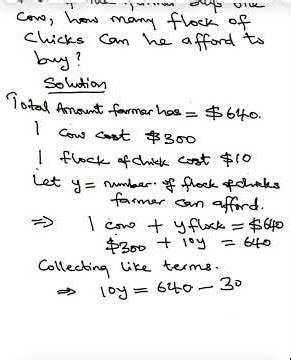 the farmer buys one
cow, how many flock of
chicks can he afford to
buy?
Solution
Total Amount farmer has = $640.
1 cow cost $300
1 flock of chick cost $10
Let y = number of flock of chicks
farmer can afford.
⇒ 1 cow + y flock = $640
$300 + 10y = 640
Collecting like terms.
⇒ 10y = 640 - 30